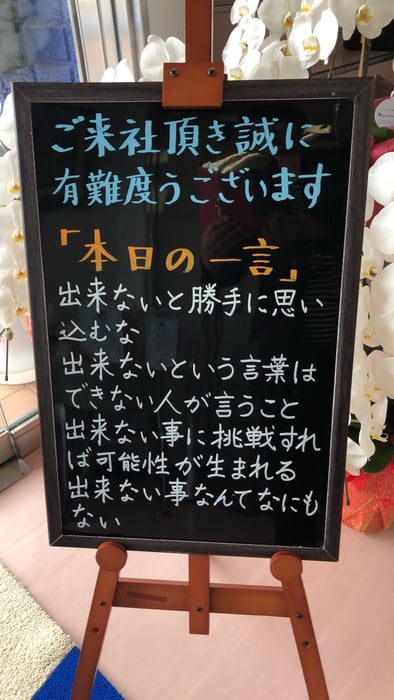 ご来社頂き誠に
有難度うございます
「本日の一言」
出来ないと勝手に思い
込むな
出来ないという言葉は
できない人が言うこと
出来ない事に挑戦すれ
ば可能性が生まれる
出来ない事なんてなにも
ない